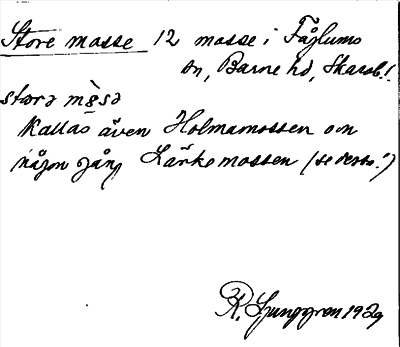 Store mosse 12 mosse i Fåglums
sn, Barne hd, Skarab.l.
stɷrə mɷ̀sə
Kallas även Holmamossen och
någon gång Lärkemossen (se dessa!)
R. Ljunggren 1929